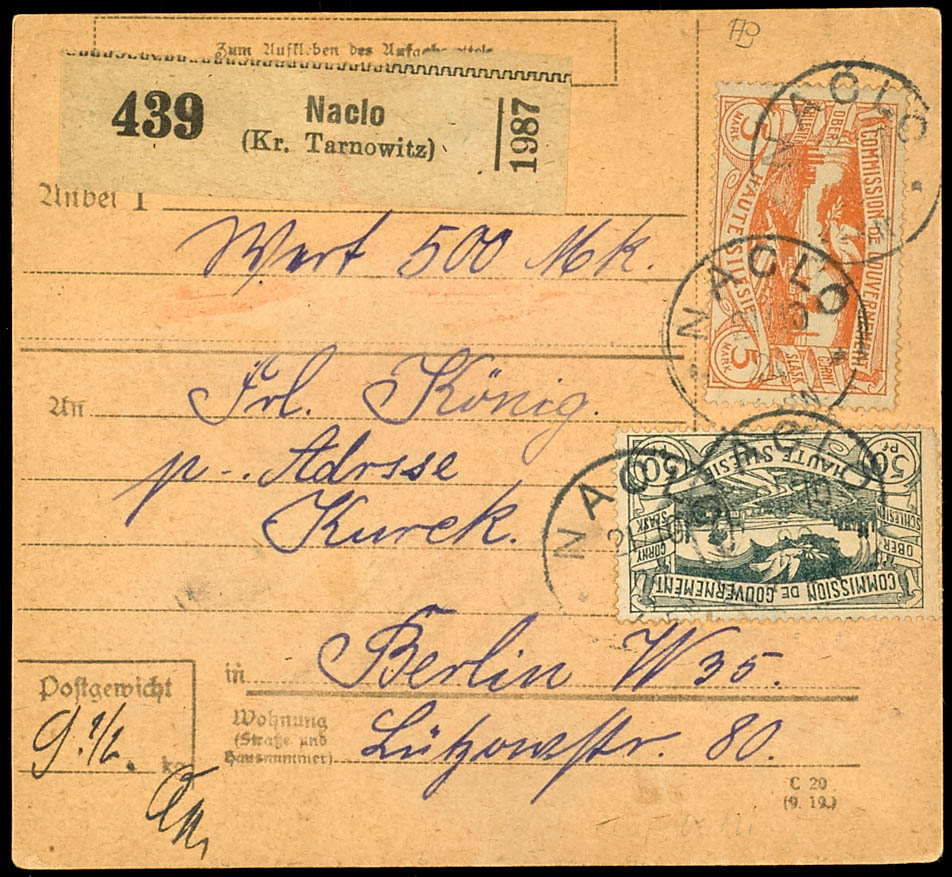 Zum Aufkleben des
439 Naclo
(Kr. Tarnowitz)
1987
Anbei 1
Wert 500 Mk.
An Frl. König.
p. Adrsse
Kurek.
in Berlin W 35.
Wohnung
(Straße und
Hausnummer)
Lützowstr. 80.
Postgewicht
9 1/2. kg
C 20
(9. 19.)
COMMISSION DE GOUVERNEMENT
HAUTE SILESIE
OBER SCHLESIEN
GORNY SLASK
5 MARK
5
COMMISSION DE GOUVERNEMENT
HAUTE SILESIE
OBER SCHLESIEN
GORNY SLASK
50 PF
50
NACLO
NACLO
NACLO
NACLO